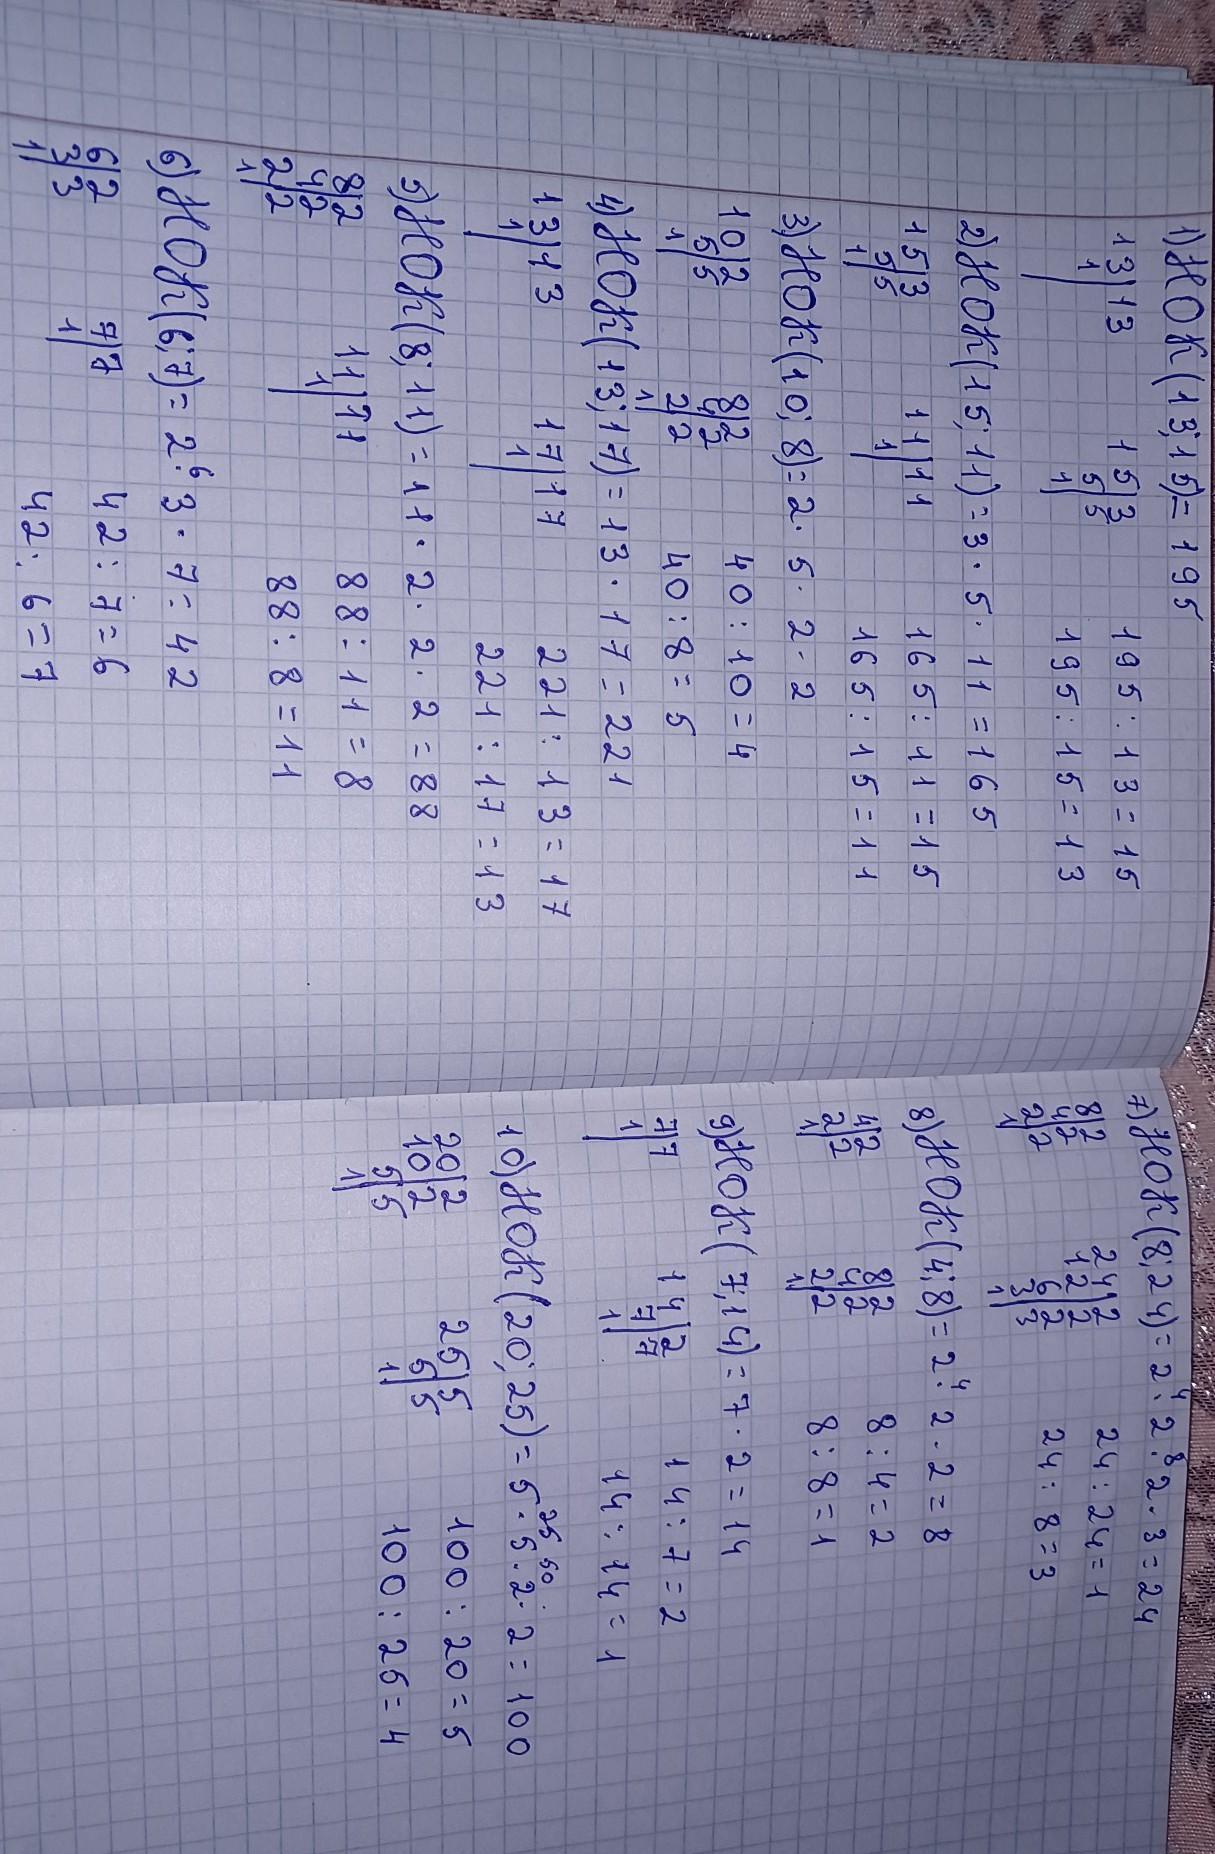 1) НОК(13;15)= 195
13|13 15|3 195:13=15
1| 5|5 195:15=13
1|
2) НОК(15;11)=3·5·11=165
15|3 11|11 165:11=15
5|5 1| 165:15=11
1|
3) НОК(10;8)=2·5·2·2
10|2 8|2 40:10=4
5|5 4|2 40:8=5
1| 2|2
1|
4) НОК(13;17)=13·17=221
13|13 17|17 221:13=17
1| 1| 221:17=13
5) НОК(8;11)=11·2·2·2=88
8|2 11|11 88:11=8
4|2 1| 88:8=11
2|2
1|
6) НОК(6;7)=2·⁶3·7=42
6|2 7|7 42:7=6
3|3 1| 42:6=7
1|
7) НОК(8;24)=2·⁴2·⁸2·3=24
8|2 24|2 24:24=1
4|2 12|2 24:8=3
2|2 6|2
1| 3|3
1|
8) НОК(4;8)=2·⁴2·2=8
4|2 8|2 8:4=2
2|2 4|2 8:8=1
1| 2|2
1|
9) НОК(7;14)=7·2=14
7|7 14|2 14:7=2
1| 7|7 14:14=1
1|
25 50
10) НОК(20;25)=5·5·2·2=100
20|2 25|5 100:20=5
10|2 5|5 100:25=4
5|5 1|
1|